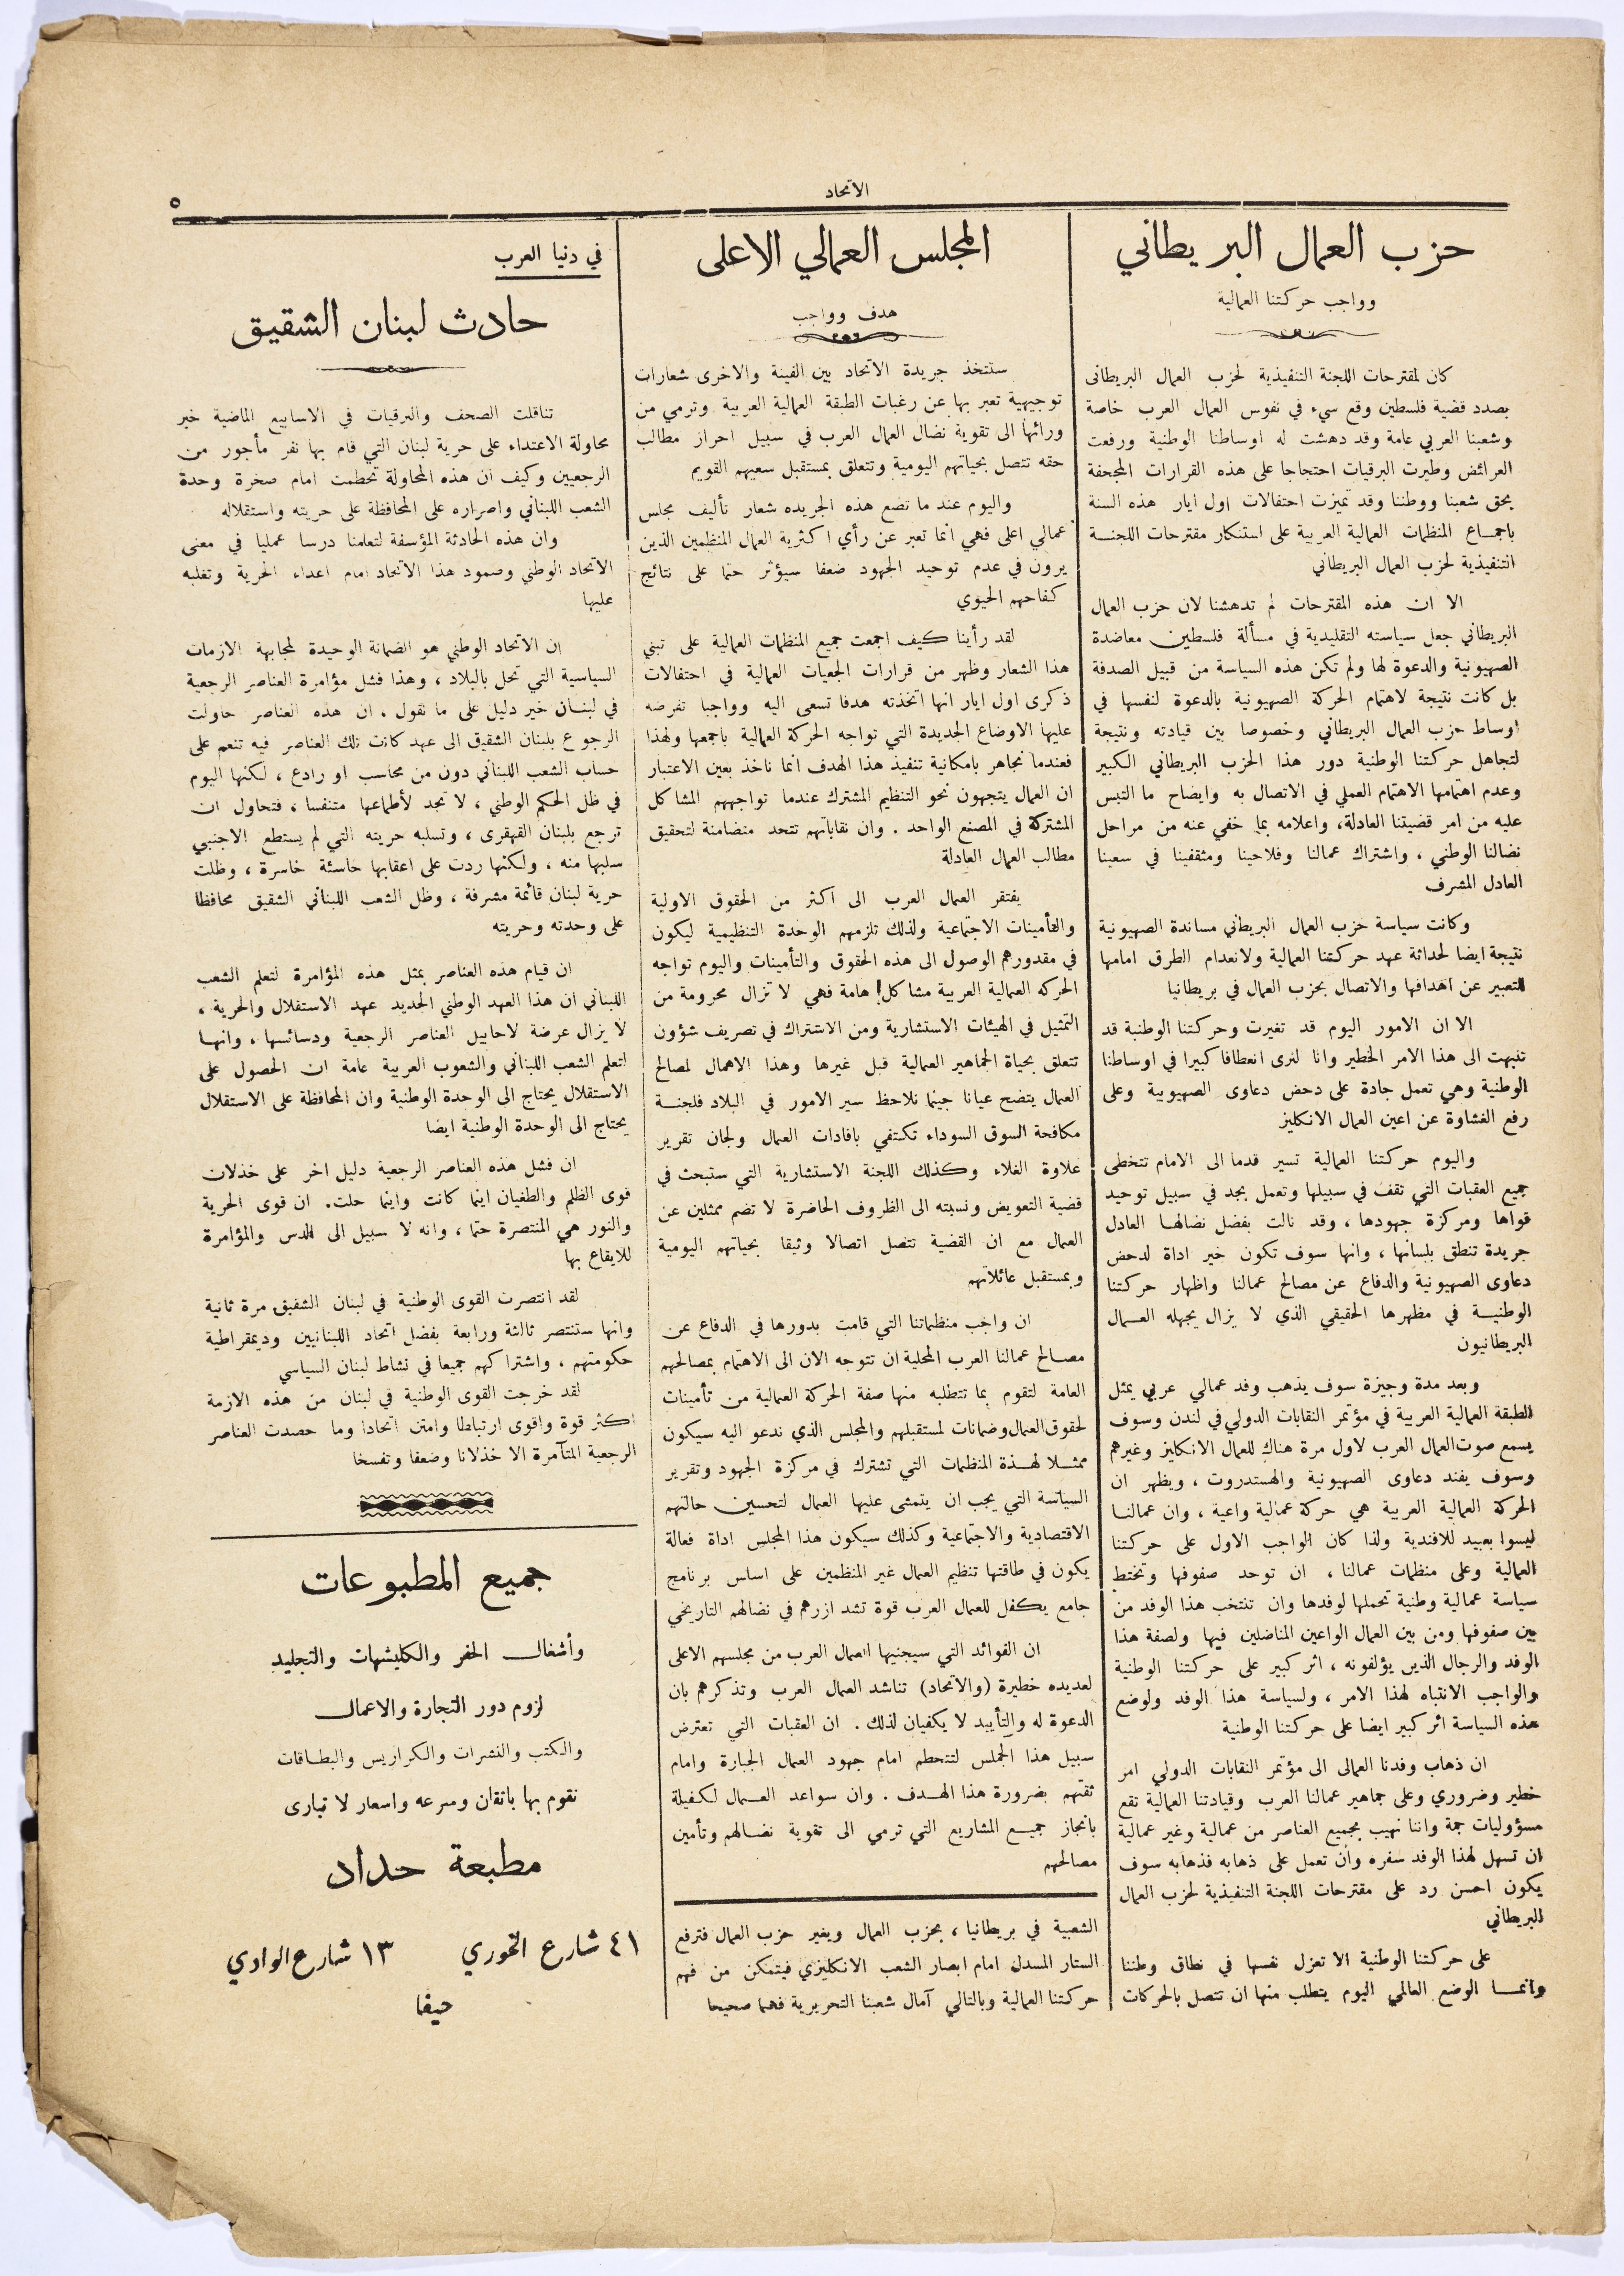 الاتحاد
٥
حزب العمال البريطاني
وواجب حركتنا العمالية
كان لمقترحات اللجنة التنفيذية لحزب العمال البريطانى
بصدد قضية فلسطين وقع سيء في نفوس العمال العرب خاصة
وشعبنا العربي عامة وقد دهشت له اوساطنا الوطنية ورفعت
العرائض وطيرت البرقيات احتجاجا على هذه القرارات المجحفة
بحق شعبنا ووطننا وقد تميزت احتفالات اول ايار هذه السنة
باجمـاع المنظمات العمالية العربية على استنكار مقترحات اللجنـة
التنفيذية لحزب العمال البريطاني
الا ان هذه المقترحات لم تدهشنا لان حزب العمال
البريطاني جعل سياسته التقليدية في مسألة فلسطين معاضدة
الصهيونية والدعوة لها ولم تكن هذه السياسة من قبيل الصدفة
بل كانت نتيجة لاهتمام الحركة الصهيونية بالدعوة لنفسها في
اوساط حزب العمال البريطاني وخصوصا بين قيادته ونتيجة
لتجاهل حركتنا الوطنية دور هذا الحزب البريطاني الكبير
وعدم اهتمامها الاهتمام العملي في الاتصال به وايضاح ما التبس
عليه من امر قضيتنا العادلة، واعلامه بما خفي عنه من مراحل
نضالنا الوطني ، واشتراك عمالنا وفلاحينا ومثقفينا في سعينا
العادل المشرف
وكانت سياسة حزب العمال البريطاني مساندة الصهيونية
نتيجة ايضا لحداثة عهد حركتنا العمالية ولانعدام الطرق امامها
للتعبير عن اهدافها والاتصال بحزب العمال في بريطانيا
الا ان الامور اليوم قد تغيرت وحركتنا الوطنية قد
تنبهت الى هذا الامر الخطير وانا لنرى انعطافا كبيرا في اوساطنا
الوطنية وهي تعمل جادة على دحض دعاوى الصهيونية وعلى
رفع الغشاوة عن اعين العمال الانكليز
واليوم حركتنا العمالية تسير قدما الى الامام تتخطى
جميع العقبات التي تقف في سبيلها وتعمل بجد في سبيل توحيد
قواها ومركزة جهودها ، وقد نالت بفضل نضالهـا العادل
جريدة تنطق بلسانها ، وانها سوف تكون خير اداة لدحض
دعاوى الصهيونية والدفاع عن مصالح عمالنا واظهار حركتنا
الوطنيـة في مظهرها الحقيقي الذي لا يزال يجهله العـمال
البريطانيون
وبعد مدة وجيزة سوف يذهب وفد عمالي عربي يمثل
الطبقة العمالية العربية في مؤتمر النقابات الدولي في لندن وسوف
يسمع صوت العمال العرب لاول مرة هناك للعمال الانكليز وغيرهم
وسوف يفند دعاوى الصهيونية والهستدروت ، ويظهر ان
الحركة العمالية العربية هي حركة عمالية واعية ، وان عمالنـا
ليسوا بعبيد للافندية ولذا كان الواجب الاول على حركتنا
العمالية وعلى منظمات عمالنا ، ان توحد صفوفها وتختط
سياسة عمالية وطنية تحملها لوفدها وان تنتخب هذا الوفد من
بين صفوفها ومن بين العمال الواعين المناضلين فيها ولصفة هذا
الوفد والرجال الذين يؤلفونه ، اثر كبير على حركتنا الوطنية
والواجب الانتباه لهذا الامر ، ولسياسة هذا الوفد ولوضع
هذه السياسة اثر كبير ايضا على حركتنا الوطنية
ان ذهاب وفدنا العمالى الى مؤتمر النقابات الدولي امر
خطير وضروري وعلى جماهير عمالنا العرب وقيادتنا العمالية تقع
مسؤوليات جمة واننا نهيب بجميع العناصر من عمالية وغير عمالية
ان تسهل لهذا الوفد سفره وان تعمل على ذهابه فذهابه سوف
يكون احسن رد على مقترحات اللجنة التنفيذية لحزب العمال
البريطاني
على حركتنا الوطنية الا تعزل نفسها في نطاق وطننا
وانمـا الوضع العالمي اليوم يتطلب منها ان تتصل بالحركات
المجلس العمالي الاعلى
هدف وواجب
ستتخذ جريدة الاتحاد بين الفينة والاخرى شعارات
توجيهية تعبر بها عن رغبات الطبقة العمالية العربية وترمي من
ورائها الى تقوية نضال العمال العرب في سبيل احراز مطالب
حقه تتصل بحياتهم اليومية وتتعلق بمستقبل سعيهم القويم
واليوم عند ما تضع هذه الجريده شعار تأليف مجلس
عمالي اعلى فهي انما تعبر عن رأي اكثرية العمال المنظمين الذين
يرون في عدم توحيد الجهود ضعفا سيؤثر حتما على نتائج
كفاحهم الحيوي
لقد رأينا كيف اجمعت جميع المنظمات العمالية على تبني
هذا الشعار وظهر من قرارات الجمعيات العمالية في احتفالات
ذكرى اول ايار انها اتخذته هدفا تسعى اليه وواجبا تفرضه
عليها الاوضاع الجديدة التي تواجه الحركة العمالية باجمعها ولهذا
فعندما نجاهر بامكانية تنفيذ هذا الهدف انما ناخذ بعين الاعتبار
ان العمال يتجهون نحو التنظيم المشترك عندما تواجههم المشاكل
المشتركة في المصنع الواحد . وان نقاباتهم تتحد متضامنة لتحقيق
مطالب العمال العادلة
يفتقر العمال العرب الى اكثر من الحقوق الاولية
والتأمينات الاجتماعية ولذلك تلزمهم الوحدة التنظيمية ليكون
في مقدورهم الوصول الى هذه الحقوق والتأمينات واليوم تواجه
الحركه العمالية العربية مشاكل هامة فهي لا تزال محرومة من
التمثيل في الهيئات الاستشارية ومن الاشتراك في تصريف شؤون
تتعلق بحياة الجماهير العمالية قبل غيرها وهذا الاهمال لمصالح
العمال يتضح عيانا حينما نلاحظ سير الامور في البلاد فلجنـة
مكافحة السوق السوداء تكتفي بافادات العمال ولجان تقرير
علاوة الغلاء وكذلك اللجنة الاستشارية التي ستبحث في
قضية التعويض ونسبته الى الظروف الحاضرة لا تضم ممثلين عن
العمال مع ان القضية تتصل اتصالا وثيقا بحياتهم اليومية
وبمستقبل عائلاتهم
ان واجب منظماتنا التي قامت بدورها في الدفاع عن
مصـالح عمالنا العرب المحلية ان تتوجه الان الى الاهتمام بمصالحهم
العامة لتقوم بما تتطلبه منها صفة الحركة العمالية من تأمينات
لحقوق العمال وضمانات لمستقبلهم والمجلس الذي ندعو اليه سيكون
ممثـلا لهـذة المنظمات التي تشترك في مركزة الجهود وتقرير
السياسة التي يجب ان يتمشى عليها العمال لتحسين حالتهم
الاقتصادية والاجتماعية وكذلك سيكون هذا المجلس اداة فعالة
يكون في طاقتها تنظيم العمال غير المنظمين على اساس برنامج
جامع يكفل للعمال العرب قوة تشد ازرهم في نضالهم التاريخي
ان الفوائد التي سيجنيها العمال العرب من مجلسهم الاعلى
لعديده خطيرة (والاتحاد) تناشد العمال العرب وتذكرهم بان
الدعوة له والتأييد لا يكفيان لذلك . ان العقبات التي تعترض
سبيل هذا المجلس لتتحطم امام جهود العمال الجبارة وامام
ثقتهم بضرورة هذا الهـدف . وان سواعد العـمال لكفيلة
بانجاز جميـع المشاريع التي ترمي الى تقوية نضـالهم وتأمين
مصالحهم
الشعبية في بريطانيا ، بحزب العمال وبغير حزب العمال فترفع
الستار المسدل امام ابصار الشعب الانكليزي فيتمكن من فهم
حركتنا العمالية وبالتالي آمال شعبنا التحريرية فهما صحيحا
في دنيا العرب
حادث لبنان الشقيق
تناقلت الصحف والبرقيات في الاسابيع الماضية خبر
محاولة الاعتداء على حرية لبنان التي قام بها نفر مأجور من
الرجعيين وكيف ان هذه المحاولة تحطمت امام صخرة وحدة
الشعب اللبناني واصراره على المحافظة على حريته واستقلاله
وان هذه الحادثة المؤسفة لتعلمنا درسا عمليا في معنى
الاتحاد الوطني وصمود هذا الاتحاد امام اعداء الحرية وتغلبه
عليها
ان الاتحاد الوطني هو الضمانة الوحيدة لمجابهة الازمات
السياسية التي تحل بالبلاد ، وهذا فشل مؤامرة العناصر الرجعية
في لبنـان خير دليل على ما نقول . ان هذه العناصر حاولت
الرجوع بلبنان الشقيق الى عهد كانت تلك العناصر فيه تنعم على
حساب الشعب اللبناني دون من محاسب او رادع ، لكنها اليوم
في ظل الحكم الوطني ، لا تجد لأطماعها متنفسا ، فتحاول ان
ترجع بلبنان القهقرى ، وتسلبه حريته التي لم يستطع الاجنبي
سلبها منه ، ولكنها ردت على اعقابها خاسئة خاسرة ، وظلت
حرية لبنان قائمة مشرفة ، وظل الشعب اللبناني الشقيق محافظا
على وحدته وحريته
ان قيام هذه العناصر بمثل هذه المؤامرة لتعلم الشعب
اللبناني ان هذا العهد الوطني الجديد عهد الاستقلال والحرية ،
لا يزال عرضة لاحابيل العناصر الرجعية ودسائسها ، وانهـا
لتعلم الشعب اللبناني والشعوب العربية عامة ان الحصول على
الاستقلال يحتاج الى الوحدة الوطنية وان المحافظة على الاستقلال
يحتاج الى الوحدة الوطنية ايضا
ان فشل هذه العناصر الرجعية دليل اخر على خذلان
قوى الظلم والطغيان اينما كانت واينما حلت. ان قوى الحرية
والنور هي المنتصرة حتما ، وانه لا سبيل الى الدس والمؤامرة
للايقاع بها
لقد انتصرت القوى الوطنية في لبنان الشقيق مرة ثانية
وانها ستنتصر ثالثة ورابعة بفضل اتحاد اللبنانيين وديمقراطية
حكومتهم ، واشتراكهم جميعا في نشاط لبنان السياسي
لقد خرجت القوى الوطنية في لبنان من هذه الازمة
اكثر قوة واقوى ارتباطا وامتن اتحادا وما حصدت العناصر
الرجعية المتآمرة الا خذلانا وضعفا وتفسخا
جميع المطبوعات
وأشغال الحفر والكليشهات والتجليد
لزوم دور التجارة والاعمال
والكتب والنشرات والكراريس والبطـاقات
نقوم بها باتقان وسرعه واسعار لا تبارى
مطبعة حداد
٤١ شارع الخوري ١٣ شارع الوادي
حيفا